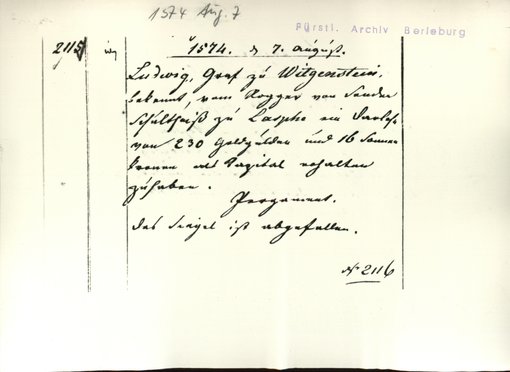 1574 Aug. 7
Fürstl. Archiv Berleburg
2115
1574. d 7. August.
Ludwig, Graf zu Witgenstein,
bekennt, vom Rogger von
Schultheiß zu Laasphe ein Darlehn
von 230 Goldgülden und 16 Sonnen
kronen als Kapital erhalten
zuhaben.
Pergament.
Das Siegel ist abgefallen.
No 2116